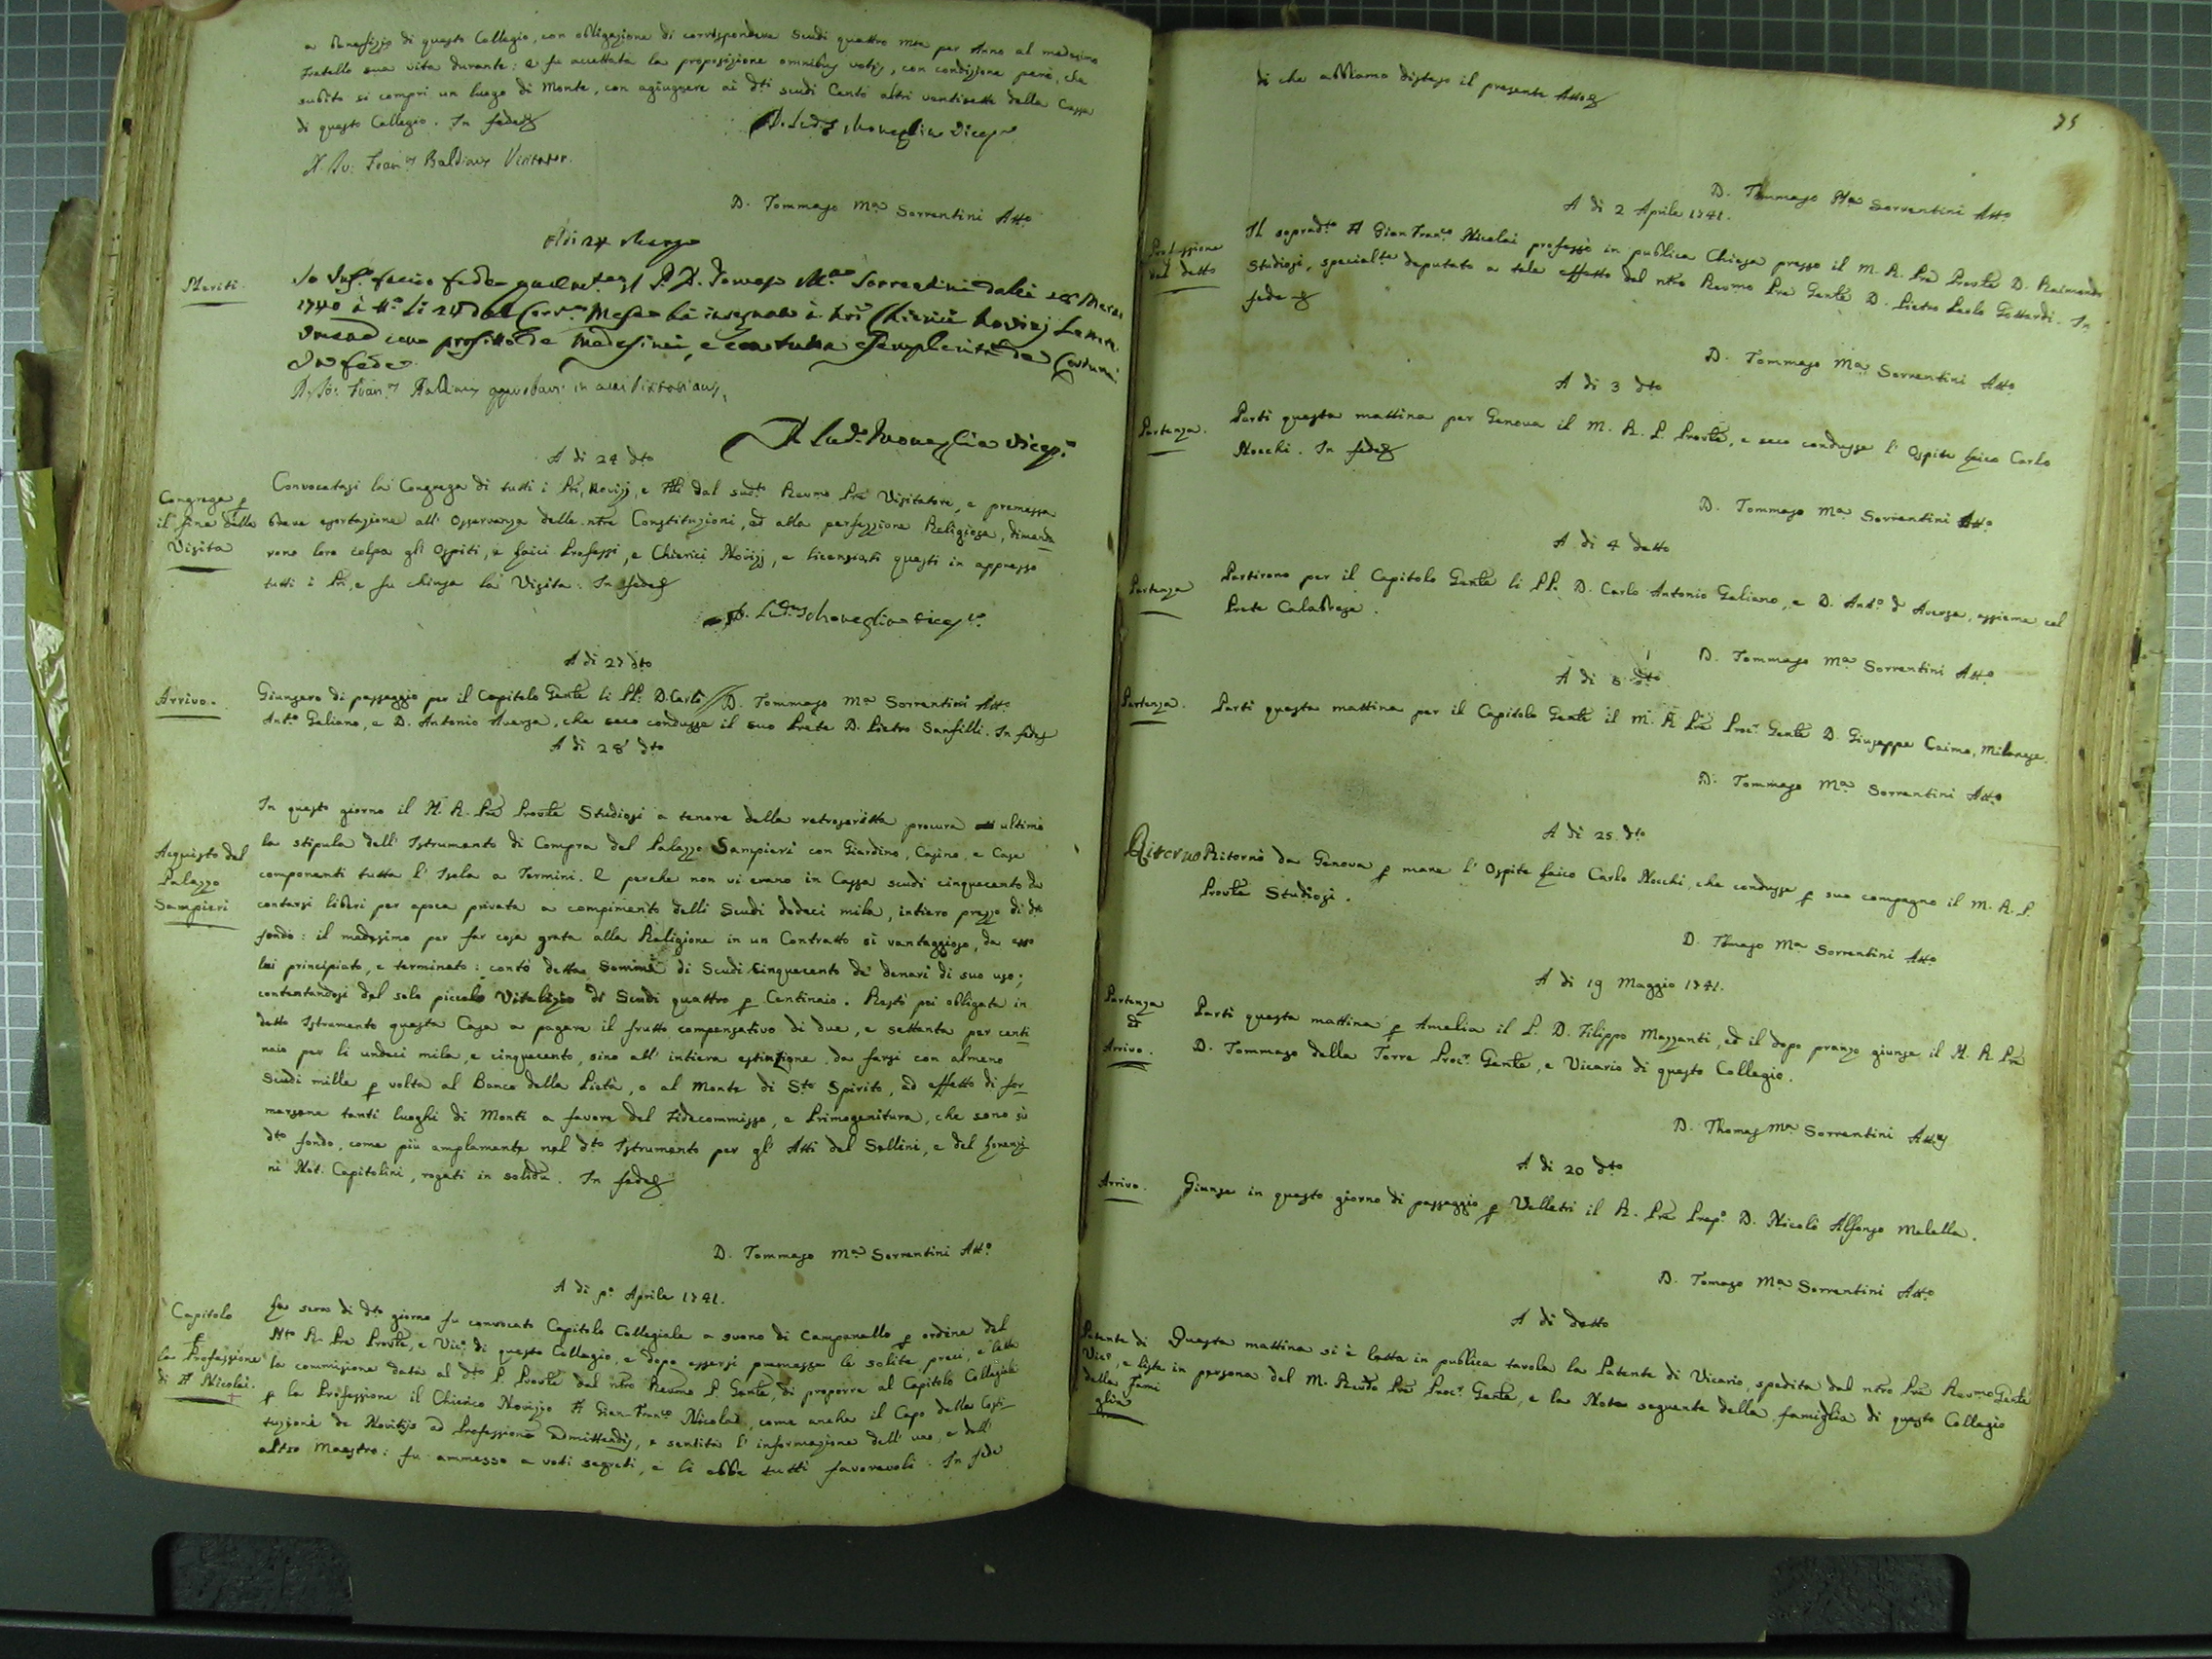 a benefizio di questo Collegio, con obligazione di corrispondere Scudi quattro mta per Anno al medesimo
Fratello sua vita durante: e fu accettata la proposizione omnibus votis, con condizione però, che
subito si compri un luogo di Monte, con agiugnere ai dti scudi Cento altri ventisette della Cassa
di questo Collegio. In fede
D. Tommaso Ma Sorrentini Atto
Meriti.
Io faccio fede qualmente il P. D. Tomaso Ma Sorrentini dalli 28 Marzo
1740 à li 24 del Corr. Mese hà insegnato à Chierici Novizj
con profitto de Medesimi, e con tutta esemplarità de Costumi
In fede
A di 24 dto
Congrega p
il fine della
Visita
Convocatasi la Congrega di tutti i Pri, Novizj, e Flli dal sudto Revmo Pre Visitatore, e premessa
breve esortazione all' Osservanza delle ntre Constituzioni, ed alla perfezzione Religiosa, dimanda
rono loro colpa gli Ospiti, e Laici Professi, e Chierici Novizj, e licenziati questi in appresso
tutti i Pri, e fu chiusa la Visita. In fede
A di 27 dto
Arrivo.
Giunsero di passaggio per il Capitolo Gente li PP. D. Carlo // D. Tommaso Ma Sorrentini Atto
Anto Galiano, e D. Antonio Aversa, che seco condusse il suo Prete D. Pietro Sanfilli. In fede
A di 28 dto
Acquisto del
Palazzo
Sampieri
In questo giorno il M. R. Pre Provle Studiosi a tenore della retroscritta procura ultimò
la stipula dell' Istrumento di Compra del Palazzo Sampieri con Giardino, Casino, e Case
componenti tutta l' Isola a Termini. E perche non vi erano in Cassa scudi cinquecento da
contarsi liberi per apoca privata a compimento delli Scudi dodeci mila, intiero prezzo di dto
fondo: il medesimo per far cosa grata alla Religione in un Contratto sì vantaggioso, da esso
lui principiato, e terminato: contò detta Somma di Scudi Cinquecento de' denari di suo uso;
contentandosi del solo piccolo Vitalizio di Scudi quattro p Centinaio. Restò poi obligata in
detto Istrumento questa Casa a pagare il frutto compensativo di due, e settanta per centi
naio per li undeci mila, e cinquecento, sino all' intiera estinzione da farsi con almeno
Scudi mille p volta al Banco della Pietà, o al Monte di Sto Spirito, ad effetto di for
marsene tanti luoghi di Monti a favore del Fidecommisso, e Primogenitura, che sono sù
dto fondo, come più amplamente nel dto Istrumento per gl' Atti del Sellini, e del Lorenzi
ni Not. Capitolini, rogati in solidu. In fede
D. Tommaso Ma Sorrentini Atto
A di po Aprile 1741.
Capitolo
p
la Professione
di F. Nicolai.
La sera di dto giorno fu convocato Capitolo Collegiale a suono di Campanello p ordine del
Mto R. Pre Provle, e Vico di questo Collegio, e dopo essersi premesse le solite preci, e letta
la commisione data al dto P. Provle dal ntro Revmo P. Gente, di proporre al Capitolo Collegiale
p la Professione il Chierico Novizzo F. Gian-Franco Nicolai, come anche il Capo delle Costi
tuzioni de Novitijs ad Professione admittendis, e sentita l' informazione dell' uno, e dell'
altro Maestro: fu ammesso a voti segreti, e li ebbe tutti favorevoli. In fede
75
di che abbiamo disteso il presente Atto
D. Tommaso Ma Sorrentini Atto
A di 2 Aprile 1741.
Professione
del detto
Il sopradto F. Gian Franco Nicolai professò in publica Chiesa presso il M. R. Pre Provle D. Raimondo
Studiosi, specialte deputato a tale effetto dal ntro Revmo Pre Gente D. Pietro Paolo Gottardi. In
fede
D. Tommaso Ma Sorrentini Atto
A di 3 dto
Partenza.
Partì questa mattina per Genova il M. R. P. Provle, e seco condusse l' Ospite Laico Carlo
Nocchi. In fede
D. Tommaso Ma Sorrentini Atto
A di 4 detto
Partenza
Partirono per il Capitolo Gente li PP. D. Carlo Antonio Galiano, e D. Anto d' Aversa, assieme col
Prete Calabrese.
D. Tommaso Ma Sorrentini Atto
A di 5 dto
Partenza.
Partì questa mattina per il Capitolo Gente il M. R. Pre Procr. Gente D. Giuseppe Caimo, Milanese.
D. Tommaso Ma Sorrentini Atto
A di 25 dto
Ritorno
Ritornò da Genova p mare l' Ospite Laico Carlo Nocchi, che condusse p suo compagno il M. R. P.
Provle Studiosi.
D. Tomaso Ma Sorrentini Atto
A di 19 Maggio 1741.
Partenza
et
Arrivo.
Partì questa mattina p Amelia il P. D. Filippo Mazzanti, ed il dopo pranzo giunse il M. R. Pre
D. Tommaso della Torre Procr. Gente, e Vicario di questo Collegio.
D. Thomas Ma Sorrentini Attus
A di 20 dto
Arrivo.
Giunse in questo giorno di passaggio p Velletri il R. Pre Prepo D. Nicolò Alfonso Melella.
D. Tomaso Ma Sorrentini Atto
A di detto
Patente di
Vico, e lista
della Fami
glia
Questa mattina si è letta in publica tavola la Patente di Vicario, spedita dal ntro Pre Revmo Gente
in persona del M. Revdo Pre Procr. Gente, e la Nota seguente della famiglia di questo Collegio